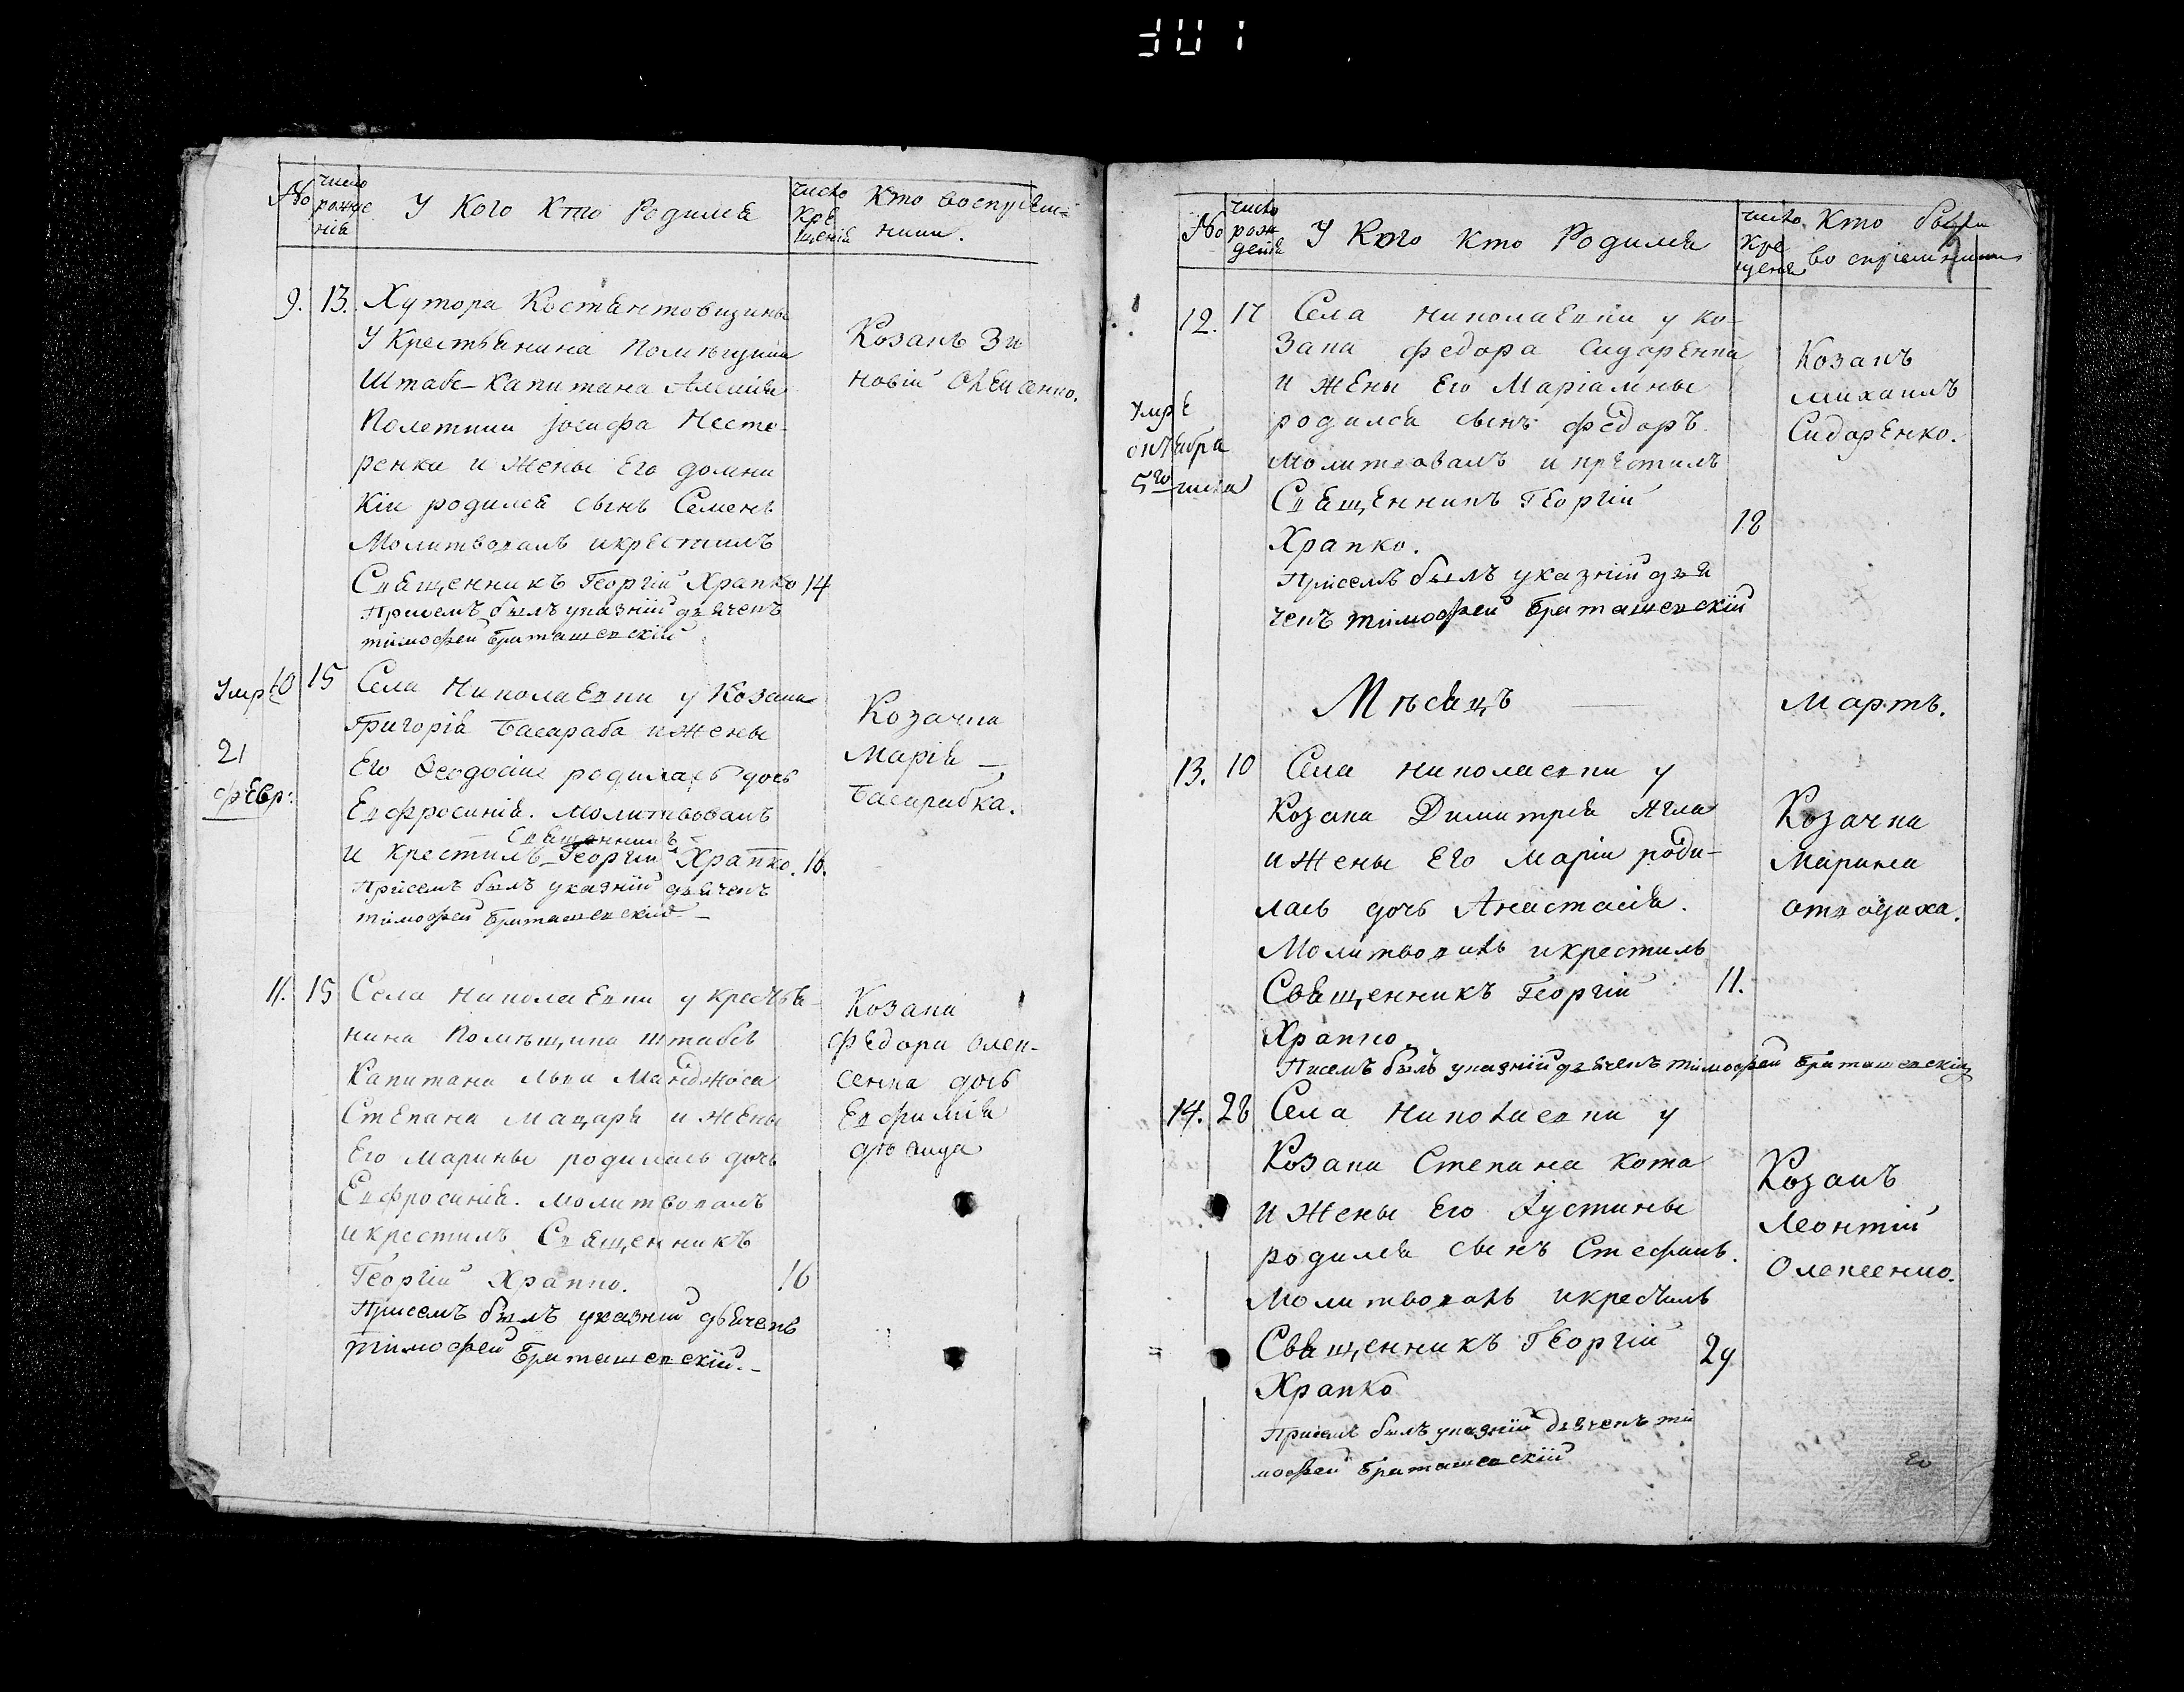 301
№
число рожде нія
У Кого Кто Родился
число Кре щенія
Кто воспріем= ники.
9. 13. Хутора Костянтовщины
У Крестьянина Помѣщика
Штабс-Капитана Алексія
Полетики Іосифа Несте-
ренка и Жены Его домни
кіи родился сынъ Семенъ
Молитвовалъ икрестилъ
Священникъ Георгій Храпко 14
Присемъ былъ указній дьячекъ
тимофей Браташевскій
Козакъ Зи
новій Олексенко.
Умре 10 15 Села Николаевки у Козака
21
февр:
Григорія Басараба иЖены
Его Ѳеодосіи родилась дочь
Евфросинія. Молитвовалъ
Священникъ
и крестилъ Георгій Храпко. 16.
Присемъ былъ указній дьячекъ
тимофей Браташевскій —
Козачка
Марія —
Басарабка.
11. 15 Села Николаевки у крестья-
нина Помѣщика штабсъ
Капитана Льва
Степана Мацаря и Жены
Его Марины родилась дочь
Евфросинія. Молитвовалъ
икрестилъ Священникъ
Георгій Храпко. 16
Присемъ былъ указній дьячекъ
тимофей Браташевскій. —
Козака
Федора Олек-
сенка дочь
Евфимія
дѣвица
№
число рож дения
У Кого Кто Родился
число Кре щения
Кто были во спріемники
12. 17 Села Николаевки у Ко-
зака Федора Сидоренка
и Жены Его Маріамны
родился сынъ Федоръ.
Молитвовалъ и крестилъ
Священникъ Георгій
Храпко. 18
Присемъ былъ указній дья
чекъ тимофей Браташевскій
Умре
октября
5го числа
Козакъ
михаилъ
Сидоренко.
Мѣсяцъ — Мартъ.
13. 10 Села Николаевки у
Козака Димитрія Ягла
иЖены Его Маріи роди-
лась дочь Анастасія.
Молитвовалъ икрестилъ
Священникъ Георгій 11.
Храпко.
Писемъ былъ указній дьячекъ тимофей Браташевскій
Козачка
Марина
14. 28 Села Николаевки у
Козака Степана Кота
иЖены Его Іустины
родился сынъ Стефанъ.
Молитвовалъ икрестилъ
Священникъ Георгій 29
Храпко
Присемъ былъ указній дьячекъ ти
мофей Браташевскій
Козакъ
Леонтій
Олексенко.